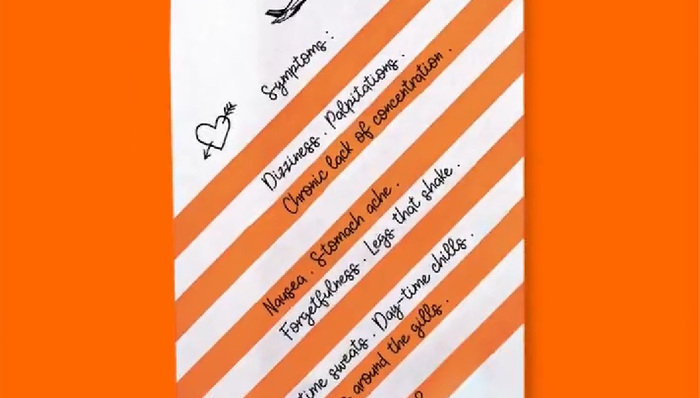 Symptoms :
Dizziness . Palpitations .
Chronic lack of concentration .
Nausea . Stomach ache .
Forgetfulness . Legs that shake .
time sweats . Day-time chills .
around the gills .